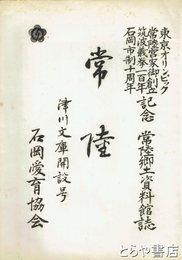 東京オリンピック
常陸宮家御創立
筑波義挙一百年
石岡市制十周年
記念 常陸郷土資料館誌
常陸
津川文庫開設号
石岡愛育協会
とらや書店